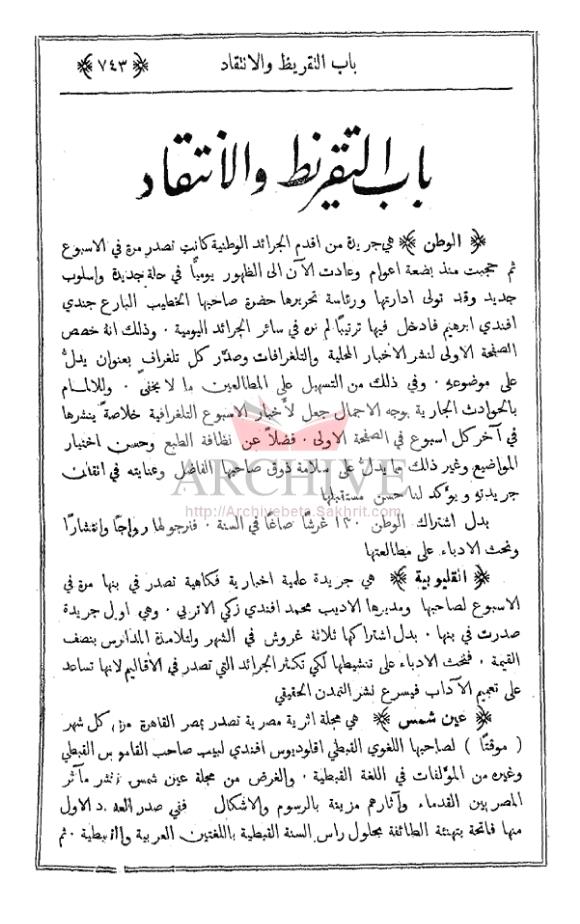 باب التقريظ والانتقاد ﴿٧٤٣﴾
باب التقريظ والانتقاد
﴿ الوطن ﴾ هي جريدة من اقدم الجرائد الوطنية كانت تصدر مرة في الاسبوع
ثم حجبت منذ بضعة اعوام وعادت الآن الى الظهور يوميًا في حلة جديدة واسلوب
جديد وقد تولى ادارتها ورئاسة تحريرها حضرة صاحبها الخطيب البارع جندي
افندي ابرهيم فادخل فيها ترتيبًا لم نره في سائر الجرائد اليومية . وذلك انهُ خصص
الصفحة الاولى لنشر الاخبار المحلية والتلغرافات وصدّر كل تلغراف بعنوان يدلُّ
على موضوعهِ . وفي ذلك من التسهيل على المطالعين ما لا يخفىٰ . وللالمام
بالحوادث الجارية بوجه الاجمال جعل لأخبار الاسبوع التلغرافية خلاصةً ينشرها
في آخر كل اسبوع في الصفحة الاولى . فضلاً عن نظافة الطبع وحسن اختيار
المواضيع وغير ذلك مما يدلُّ على سلامة ذوق صاحبها الفاضل وعنايته في اتقان
جريدتهِ ويؤكد لنا حسن مستقبلها
ARCHIVE
http://Archivebeta.Sakhrit.com
بدل اشتراك الوطن ١٢٠ غرشًا صاغًا في السنة . فنرجو لها رواجًا وانتشارًا
ونحث الادباء على مطالعتها
﴿ القليوبية ﴾ هي جريدة علمية اخبارية فكاهية تصدر في بنها مرة في
الاسبوع لصاحبها ومديرها الاديب محمد افندي زكي الاتربي . وهي اول جريدة
صدرت في بنها . بدل اشتراكها ثلاثة غروش في الشهر ولتلامذة المدارس بنصف
القيمة . فنحث الادباء على تنشيطها لكي تكثر الجرائد التي تصدر في الأقاليم لانها تساعد
على تعميم الآداب فيسرع نشر التمدن الحقيقي
﴿ عين شمس ﴾ هي مجلة اثرية مصرية تصدر بمصر القاهرة مرة كل شهر
( موقتًا ) لصاحبها اللغوي القبطي اقلوديوس افندي لبيب صاحب القاموس القبطي
وغيره من المؤلفات في اللغة القبطية . والغرض من مجلة عين شمس نشر مآثر
المصريين القدماء وآثارهم مزينة بالرسوم والاشكال ففي صدر العدد الاول
منها فاتحة بتهنئة الطائفة بحلول راس السنة القبطية باللغتين العربية والقبطية . ثم